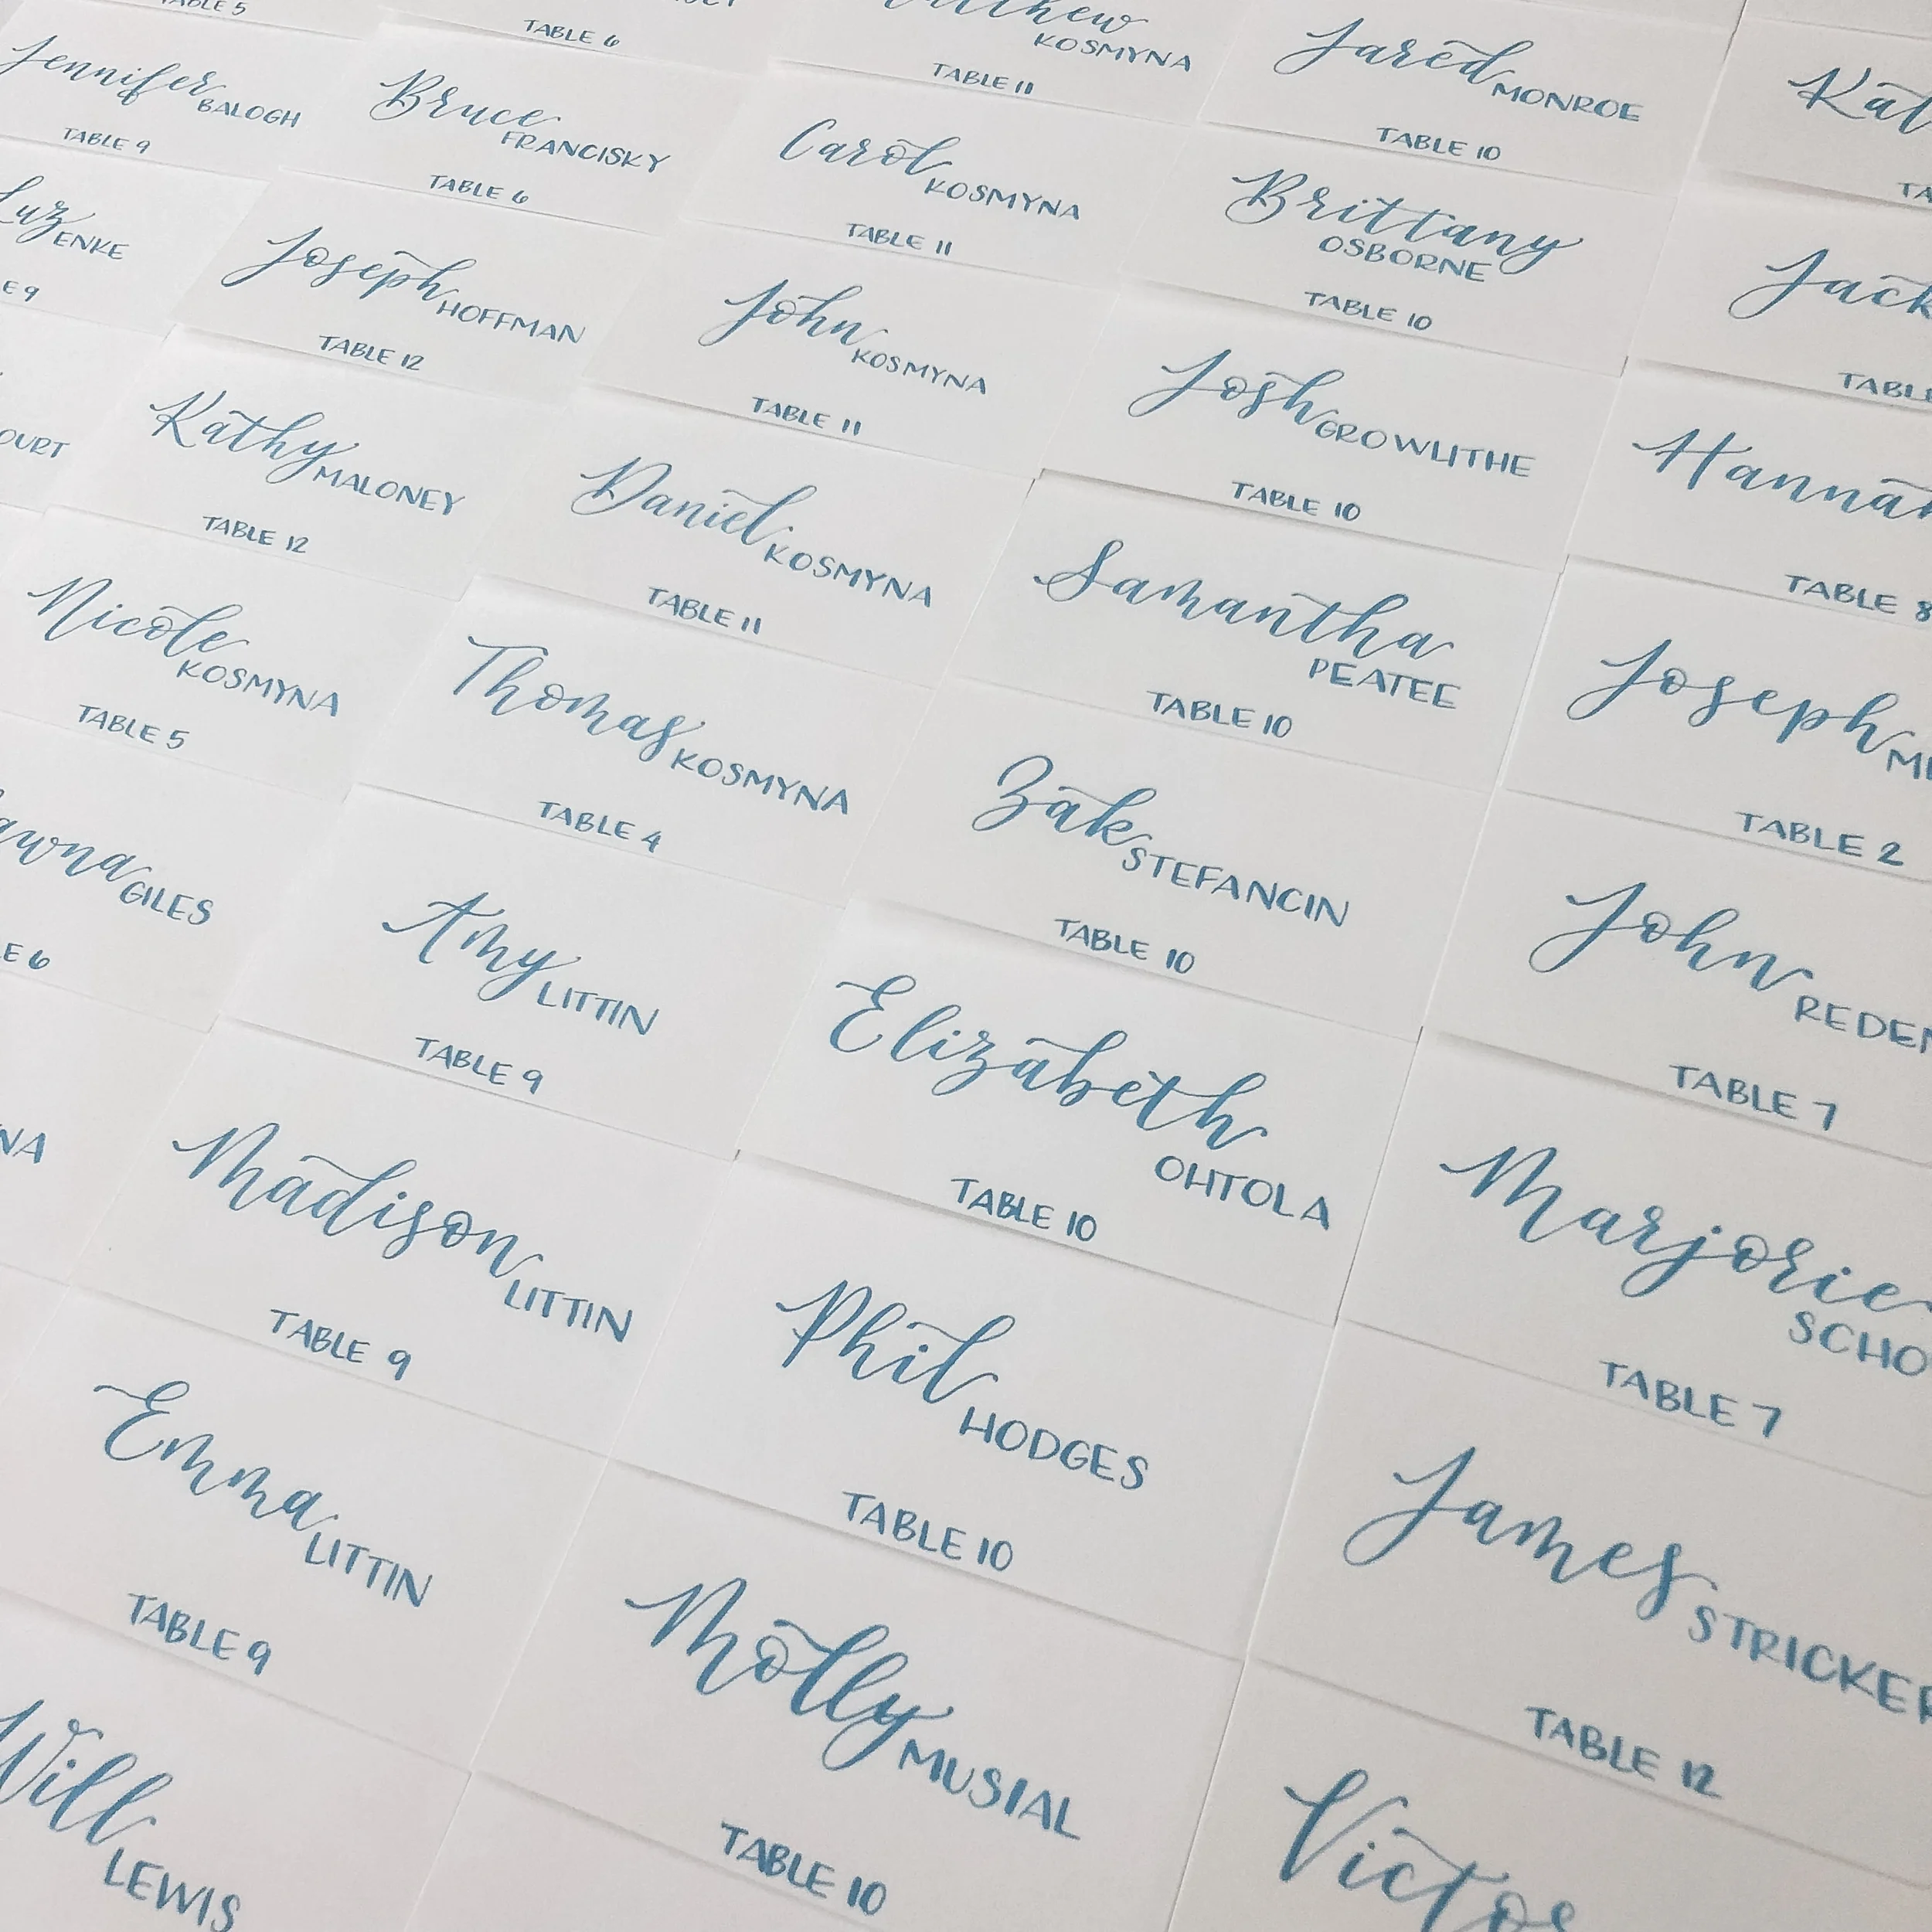 TABLE 5
Jennifer
BALOGH
TABLE 9
Luz
ENKE
E 9
OURT
TABLE 6
Bruce
FRANCISKY
TABLE 6
Joseph
HOFFMAN
TABLE 12
Kathy
MALONEY
TABLE 12
Nicole
KOSMYNA
TABLE 5
awna
GILES
E 6
NA
KOSMYNA
TABLE 11
Carol
KOSMYNA
TABLE 11
John
KOSMYNA
TABLE 11
Daniel
KOSMYNA
TABLE 11
Thomas
KOSMYNA
TABLE 4
Amy
LITTIN
TABLE 9
Madison
LITTIN
TABLE 9
Emma
LITTIN
TABLE 9
Will
LEWIS
Jared
MONROE
TABLE 10
Brittany
OSBORNE
TABLE 10
Josh
GROWLITHE
TABLE 10
Samantha
PEATEE
TABLE 10
Zak
STEFANCIN
TABLE 10
Elizabeth
OHTOLA
TABLE 10
Phil
HODGES
TABLE 10
Molly
MUSIAL
TABLE 10
Kat
TA
Jack
TABLE
Hannah
TABLE 8
Joseph
TABLE 2
John
REDEN
TABLE 7
Marjorie
SCHO
TABLE 7
James
STRICKER
TABLE 12
Victor